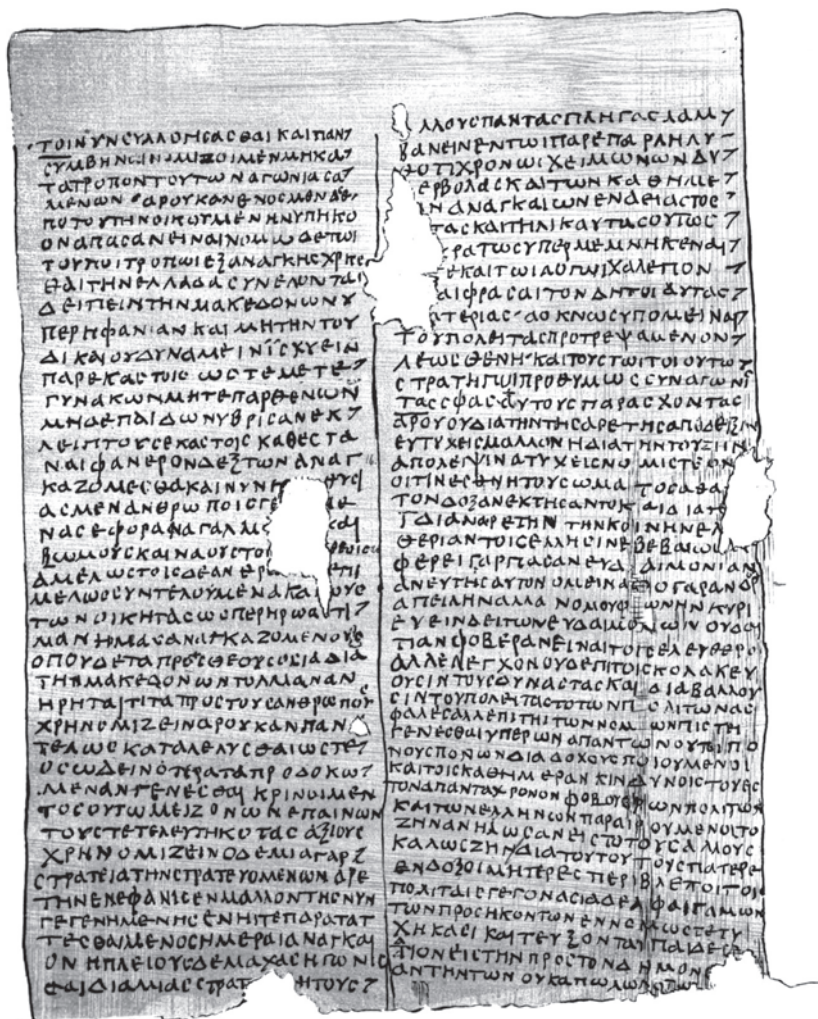 ΤΟΙΝΥΝϹΥΛΛΟΗϹΑϹΘΑΙΚΑΙΠΑΝ
ϹΥΜΒΗΝΟΙΝΟΜΙΖΟΙΜΕΝΜΗΚΑ
ΤΑΤΡΟΠΟΝΤΟΥΤΩΝΑΓΩΝΙϹΑ
ΜΕΝΩΝ ΑΡΟΥΚΑΝΕΝΟϹΜΕΝΔΕ
ΠΟΤΟΥΤΗΝΟΙΚΟΥΜΕΝΗΝΥΠΗΚΟ
ΟΝΑΠΑϹΑΝΕΙΝΑΙΝΟΜΩΔΕΤΩΙ
ΤΟΥΠΟΙΤΡΟΠΩΙΕΞΑΝΑΓΚΗϹΧΡΗϹ
ΘΑΙΤΗΝΕΛΛΑΔΑϹΥΝΕΛΟΝΤΑ
ΔΕΙΠΕΙΝΤΗΝΜΑΚΕΔΟΝΩΝΥ
ΠΕΡΗΦΑΝΙΑΝΚΑΙΜΗΤΗΝΤΟΥ
ΔΙΚΑΙΟΥΔΥΝΑΜΕΙΝΪϹΧΥΕΙΝ
ΠΑΡΕΚΑϹΤΟΙϹ ΩϹΤΕΜΕΤΕ
ΓΥΝΑΚΩΝΜΗΤΕΠΑΡΘΕΝΩΝ
ΜΗΔΕΠΑΙΔΩΝΥΒΡΙϹΑΝΕΚ
ΛΕΙΠΤΟΥϹΕΚΑϹΤΟΙϹΚΑΘΕϹΤΑ
ΝΑΙΦΑΝΕΡΟΝΔΕΞΤΩΝΑΝΑΓ
ΚΑΖΟΜΕϹΘΑΚΑΙΝΥΝ ΘΥϹΙ
ΑϹΜΕΝΑΝΘΡΩΠΟΙϹΓΕ
ΝΑϹΕΦΟΡΑΝΑΓΑΛΜ ΚΑΙ
ΒΩΜΟΥϹΚΑΙΝΑΟΥϹΤΟ
ΔΜΕΛΩϹΤΟΙϹΔΕΑΝΘΡ ΕΠΙ
ΜΕΛΩϹϹΥΝΤΕΛΟΥΜΕΝΑΚΑΙ ΟΥϹ
ΤΩΝΟΙΚΗΤΑϹΩϹΠΕΡΗΡΩΑϹΤΙ
ΜΑΝΗΜΑϹΑΝΑΓΚΑΖΟΜΕΝΟΥϹ
ΟΠΟΥΔΕΤΑΠΡΟϹΘΕΟΥϹΟϹΙΑΔΙΑ
ΤΗΝΜΑΚΕΔΟΝΩΝΤΟΛΜΑΝΑΝ
ΗΡΗΤΑΙΤΙΤΑΠΡΟϹΤΟΥϹΑΝΘΡΩΠΟΥϹ
ΧΡΗΝΟΜΙΖΕΙΝΑΡΟΥΚΑΝΠΑΝ
ΤΕΛΩϹΚΑΤΑΛΕΛΥϹΘΑΙΩϹΤΕ
ΟϹΩΔΕΙΝΟΤΕΡΑΤΑΠΡΟΔΟΚΩ
ΜΕΝΑΝΓΕΝΕϹΘΑΙ ΚΡΙΝΟΙΜΕΝ
ΤΟϹΟΥΤΩΜΕΙΖΟΝΩΝΕΠΑΙΝΩΝ
ΤΟΥϹΤΕΤΕΛΕΥΤΗΚΟΤΑϹΑΞΙΟΥϹ
ΧΡΗΝΟΜΙΖΕΙΝΟΔΕΜΙΑΓΑΡ
ϹΤΡΑΤΕΙΑΤΗΝϹΤΡΑΤΕΥΟΜΕΝΩΝΑΡΕ
ΤΗΝΕΝΕΦΑΝΙϹΕΝΜΑΛΛΟΝΤΗϹΝΥΝ
ΓΕΓΕΝΗΜΕΝΗϹΕΝΗΙΤΕΠΑΡΑΤΑΤ
ΤΕϹΘΑΙΜΕΝΟϹΗΜΕΡΑΙΑΝΑΓΚΑΙ
ΟΝ ΗΠΛΕΙΟΥϹΔΕΜΑΧΑϹΗΓΩΝΙϹ
ΘΑΙΔΙΑΜΙΑϹϹΤΡΑΤ ΗΤΟΥϹ
ΛΛΟΥϹΠΑΝΤΑϹΠΛΗΓΑϹΛΑΜ
ΒΑΝΕΙΝΕΝΤΩΙΠΑΡΕΠΑΡΛΗΛΥ
ΘΟΤΙΧΡΟΝΩΙΧΕΙΜΩΝΩΝΔΥ
ΕΡΒΟΛΑϹΚΑΙΤΩΝΚΑΘΗΜΕ
ΑΝΑΓΚΑΙΩΝΕΝΔΕΙΑϹΤΟϹ
ΤΑϹΚΑΙΤΗΛΙΚΑΥΤΑϹΟΥΤΩϹ
ΚΡΑΤΩϹΥΠΕΡΜΕΜΝΗΚΕΝΑΙ
ΤΕΚΑΙΤΩΙΛΟΓΩΙΧΑΛΕΠΟΝ
ΑΙΦΡΑϹΑΙΤΟΝΔΗΤΟΙΑΥΤΑϹ
ΑΤΕΡΙΑϹΑΟΚΝΩϹΥΠΟΜΕΙΝΑΙ
ΤΟΥΠΟΛΕΙΤΑϹΠΡΟΤΡΕΨΑΜΕΝΟΝ
ΛΕΩϹΘΕΝΗ ΚΑΙΤΟΥϹΤΩΙΤΟΙΟΥΤΩ
ϹΤΡΑΤΗΓΩΙΠΡΟΘΥΜΩϹϹΥΝΑΓΩΝΙ
ΤΑϹϹΦΑϹΑΥΤΟΥϹΠΑΡΑϹΧΟΝΤΑϹ
ΑΡΟΥΟΥΔΙΑΤΗΝΤΗϹΑΡΕΤΗϹΑΠΟΔΕΙΞΙΝ
ΕΥΤΥΧΕΙϹΜΑΛΛΟΝΗΔΙΑΤΗΝΤΟΥΖΗΝ
ΑΠΟΛΕΙΨΙΝΑΤΥΧΕΙϹΝΟΜΙϹΤΕΟΝ
ΟΙΤΙΝΕϹΘΝΗΤΟΥϹΩΜΑΤΟϹΑΘΑ
ΤΟΝΔΟΞΑΝΕΚΤΗϹΑΝΤΟΚΑΙΔΙΑΤ
ΙΔΙΑΝΑΡΕΤΗΝ ΤΗΝΚΟΙΝΗΝΕΛ
ΘΕΡΙΑΝΤΟΙϹΕΛΛΗϹΙΝΕΒΕΒΑΙΩ
ΦΕΡΕΙΓΑΡΠΑϹΑΝΕΥΔΑΙΜΟΝΙΑΝ
ΑΝΕΥΤΗϹΑΥΤΟΝΟΜΕΙΝΑΟΓΑΡΑΝΔΡ
ΑΠΕΙΛΗΝΑΛΛΑ ΝΟΜΟΥΦΩΝΗΝΚΥΡΙ
ΕΥΕΙΝΔΕΙΤΩΝΕΥΔΑΙΜΟΝΩΝΟΥΔΑΙ
ΤΙΑΝΦΟΒΕΡΑΝΕΙΝΑΙΤΟΙϹΕΛΕΥΘΕΡΟ
ΑΛΛΕΛΕΓΧΟΝΟΥΔΕΠΙΤΟΙϹΚΟΛΑΚΕΥ
ΟΥϹΙΝΤΟΥϹΔΥΝΑϹΤΑϹΚΑΙΔΙΑΒΑΛΛΟΥ
ϹΙΝΤΟΥΠΟΛΕΙΤΑϹΤΟΤΩΝΠΟΛΙΤΩΝΑϹ
ΦΑΛΕϹΑΛΛΕΠΙΤΗΙΤΩΝΝΟΜΩΝΠΙϹΤΕΙ
ΓΕΝΕϹΘΑΙΥΠΕΡΩΝΑΠΑΝΤΩΝΟΥΤΟΙΠΟ
ΝΟΥϹΠΟΝΩΝΔΙΑΔΟΧΟΥϹΠΟΙΟΥΜΕΝΟΙ
ΚΑΙΤΟΙϹΚΑΘΗΜΕΡΑΝΚΙΝΔΥΝΟΙϹΤΟΥϹΕϹ
ΤΟΝΑΠΑΝΤΑΧΡΟΝΟΝΦΟΒΟΥϹΤΩΝΠΟΛΙΤΩΝ
ΚΑΙΤΩΝΕΛΛΗΝΩΝΠΑΡΑΙΡΟΥΜΕΝΟΙΤΟ
ΖΗΝΑΝΗΛΩϹΑΝΕΙϹΤΟΤΟΥϹΑΛΛΟΥϹ
ΚΑΛΩϹΖΗΝΔΙΑΤΟΥΤΟΥΤΟΥϹΠΑΤΕΡΕ
ΕΝΔΟΞΟΙΜΗΤΕΡΕϹΠΕΡΙΒΛΕΠΟΙΤΟΙϹ
ΠΟΛΙΤΑΙϹΓΕΓΟΝΑϹΙΑΔΕΛΦΑΙΓΑΜΩΝ
ΤΩΝΠΡΟϹΗΚΟΝΤΩΝΕΝΝΟΜΩϹΤΕΤΥ
ΧΗΚΑϹΙΚΑΙΤΕΥΞΟΝΤΑΙΠΑΙΔΕϹΕ
ΔΙΟΝΕΙϹΤΗΝΠΡΟϹΤΟΝΔΗΜΟΝ
ΑΝΤΗΝΤΩΝ ΟΥΚΑΠΟΛΩΛΟΤΩ